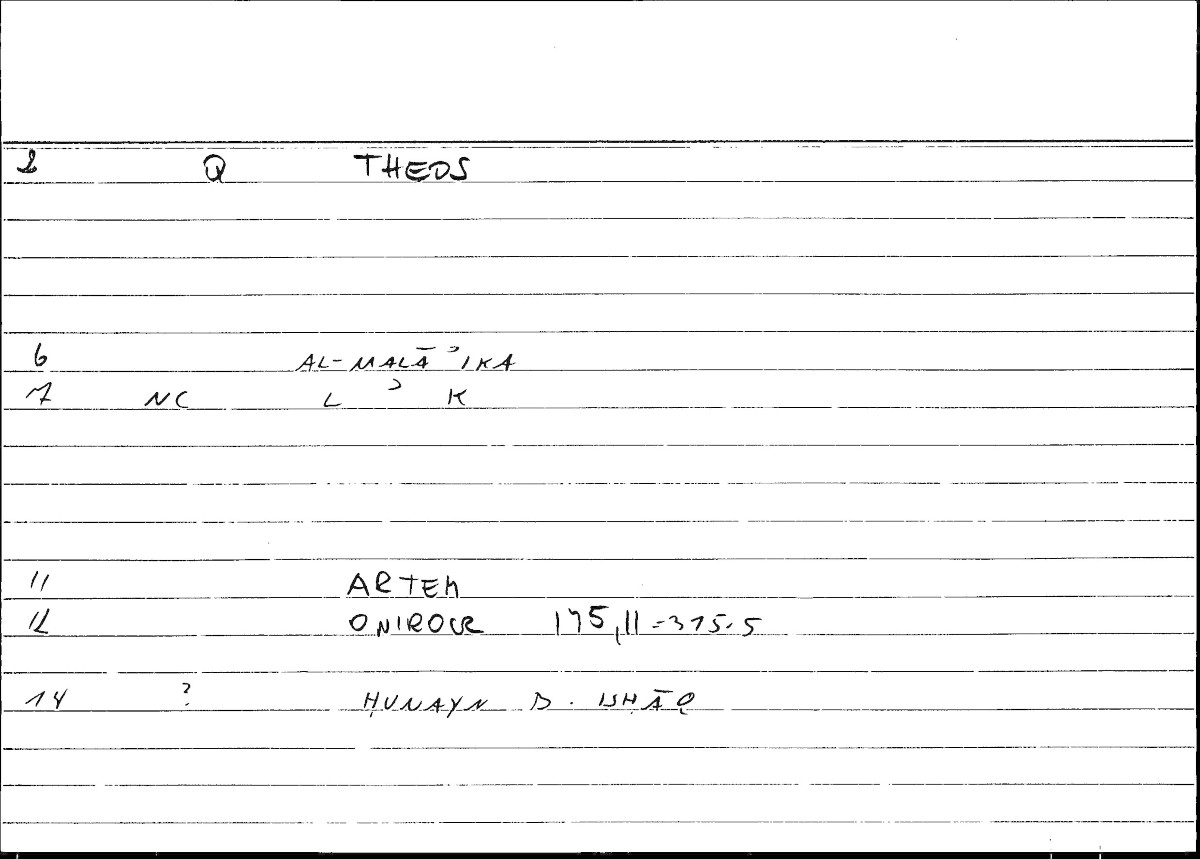 1 Q THEOS
6 AL-MALĀʾIKA
7 NC L ʾ K
11 ARTEM
12 ONIROCR 175,11-315.5
14 ? ḤUNAYN B. ISḤĀQ